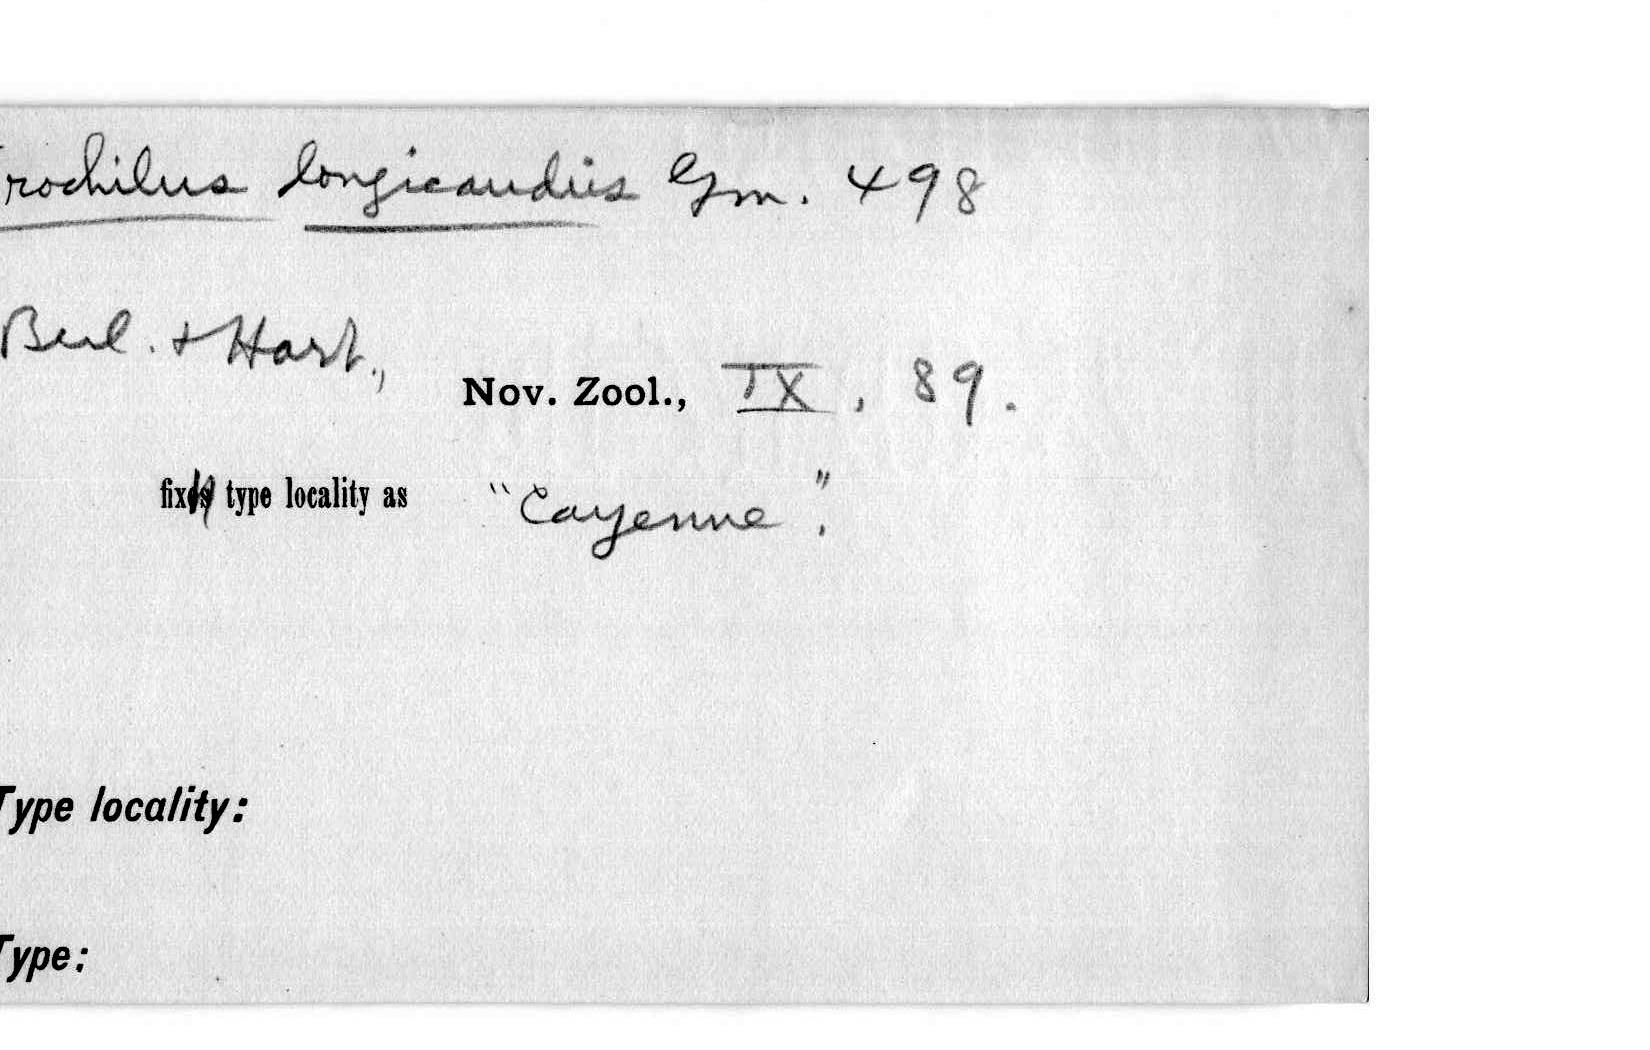 rochilus longicaudus Gm. 498
Berl. + Hart.,
Nov. Zool., IX, 89.
fix type locality as "Cayenne".
Type locality:
Type: